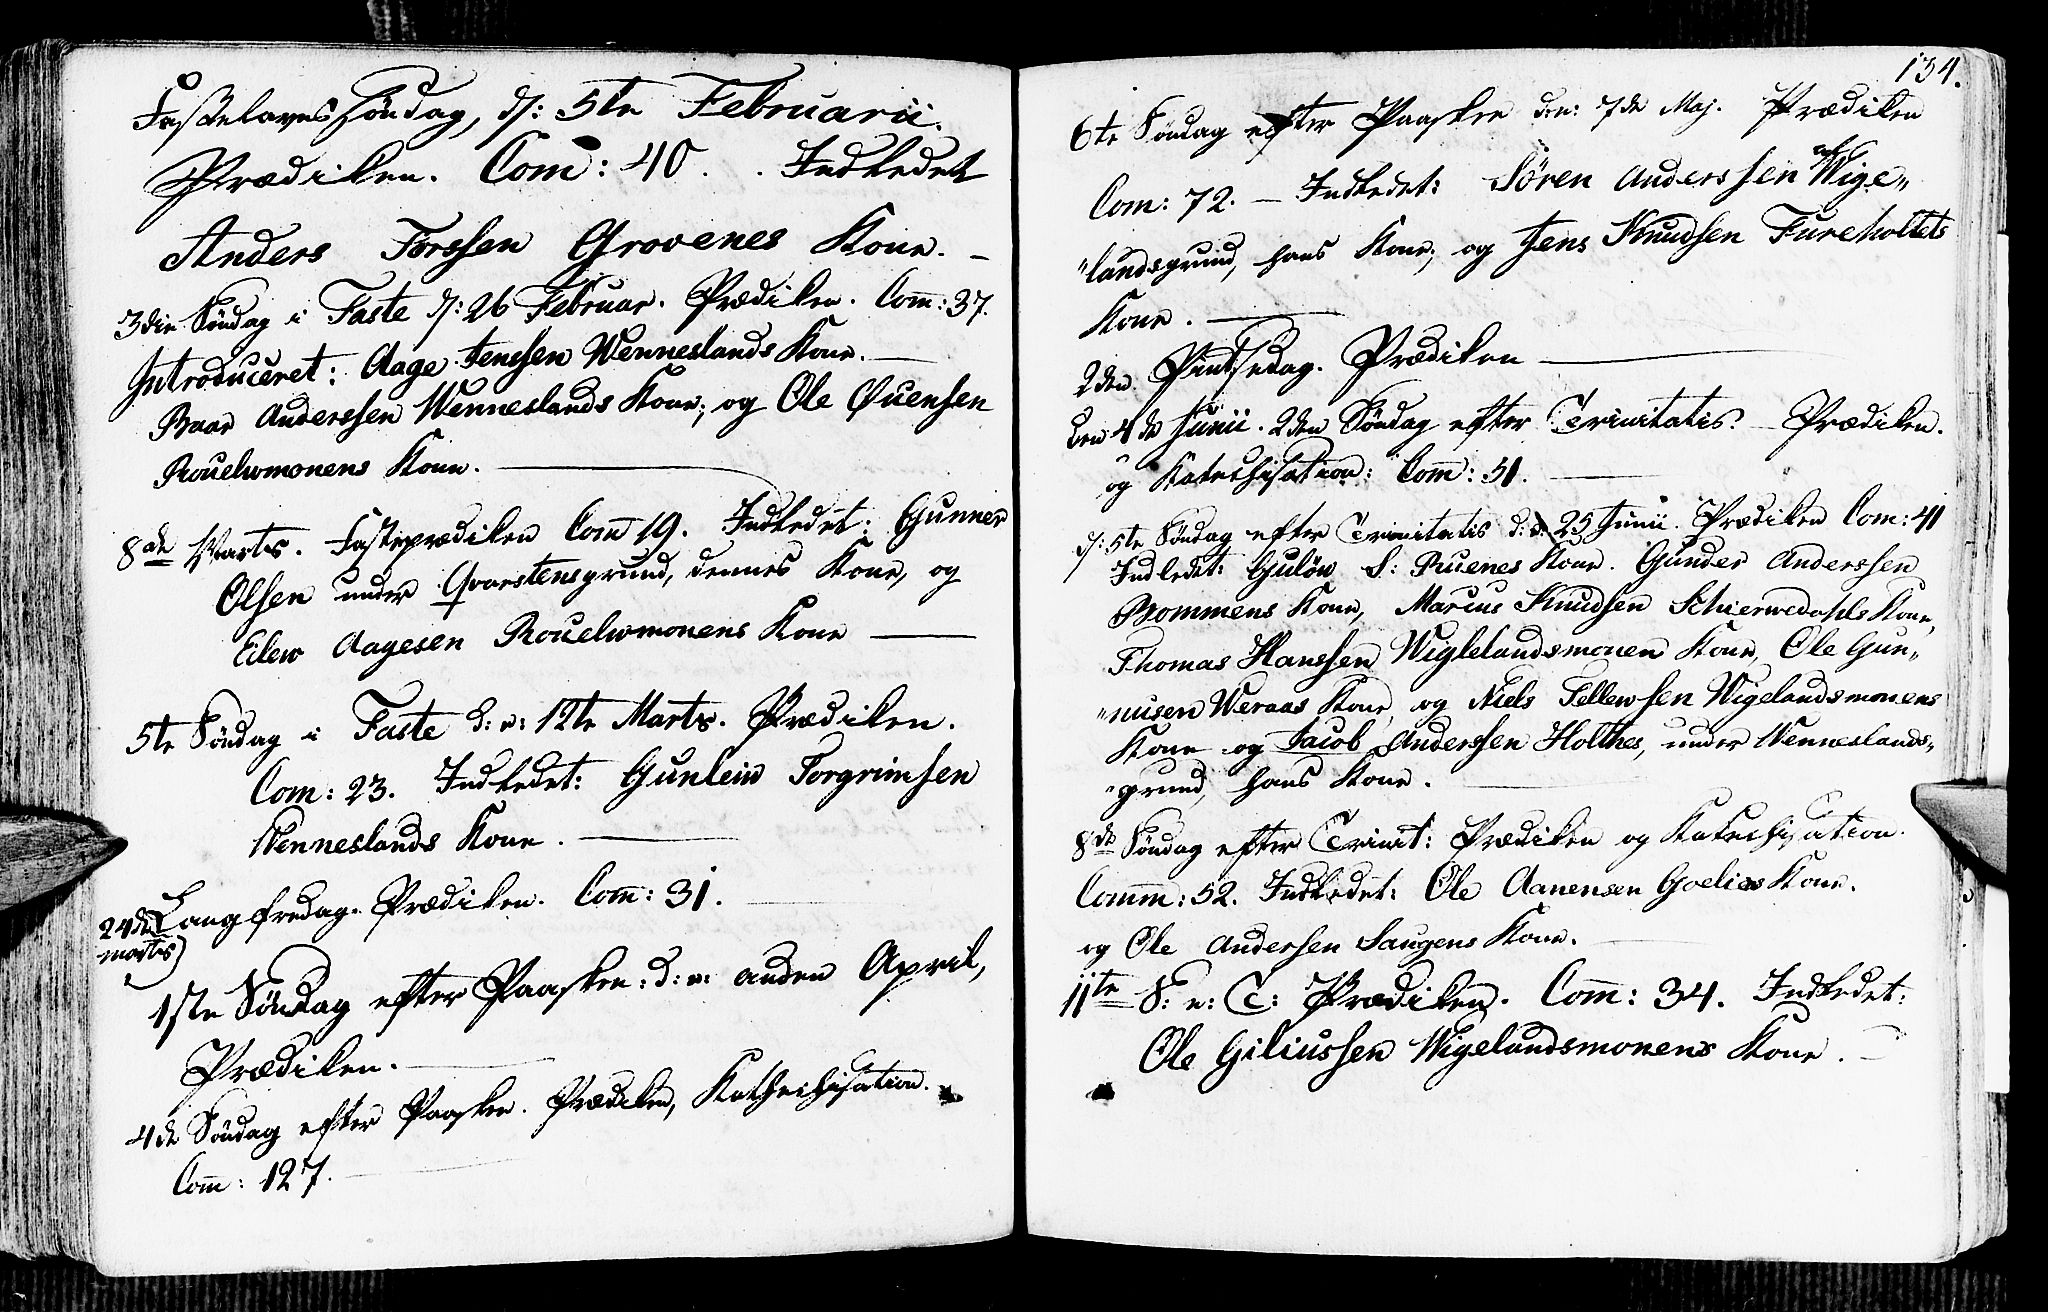 Fastelavns Söndag, d: 5te Februarii.
Prædiken. Com: 40. Indledet
Anders Torssen Grovenes Kone. —
3die Söndag i Faste d: 26 Februar. Prædiken. Com̄: 37.
Introduceret: Aage Jenssen Wenneslands Kone. —
Baar Anderssen Wenneslands Kone; og Ole Øuensen
Rouelwmonens Kone. —
8de Marts. Fasteprædiken Com̄ 19. Indledet: Gunner
Olsen under Qvarstensgrund, dennes Kone, og
Eilew Aagesen Rouelwmonens Kone —
5te Söndag i Faste d: e: 12te Marts. Prædiken.
Com: 23. Indledet: Gunlew Torgrimsen
Wenneslands Kone. —
24de
marts)
Langfredag. Prædiken. Com̄: 31.
1ste Söndag efter Paasken: d: e: anden April,
Prædiken. —
4de Söndag efter Paasken. Prædiken, Kathechisation.
Com̄: 127.
134.
6te Söndag efter Paasken den: 7de Maj. Prædiken
Com: 72. — Indledet: Sören Anderssen Wige„
„landsgrund, hans Kone; og Jens Knudsen Fureholtets
Kone. —
2den Pintsedag. Prædiken —
den 4de Junii. 2den Söndag efter Trinitatis. Prædiken.
og Katechisation: Com̄: 51. —
d: 5te Söndag efter Trinitatis d: e: 25 Junii. Prædiken Com: 41
Indledet: Gulöw S: Ruenes Kone. Gunder Anderssen
Bommens Kone, Marcus Knudsen Schierwedahls Kone,
Thomas Hanssen Wiglelandsmonen Kone, Ole Gun„
„nusen Weraas Kone, og Niels Tellewsen Wigelandsmonens
Kone og Jacob Anderssen Holthes, under Wenneslands„
„grund, hans Kone. —
8de Söndag efter Trinit: Prædiken og Katechisation.
Comm: 52. Indledet: Ole Aanensen Goelies Kone.
og Ole Andersen Saugens Kone. —
11te S: e: T: Prædiken. Com̄: 34. Indledet:
Ole Giliussen Wigelandsmonens Kone. —